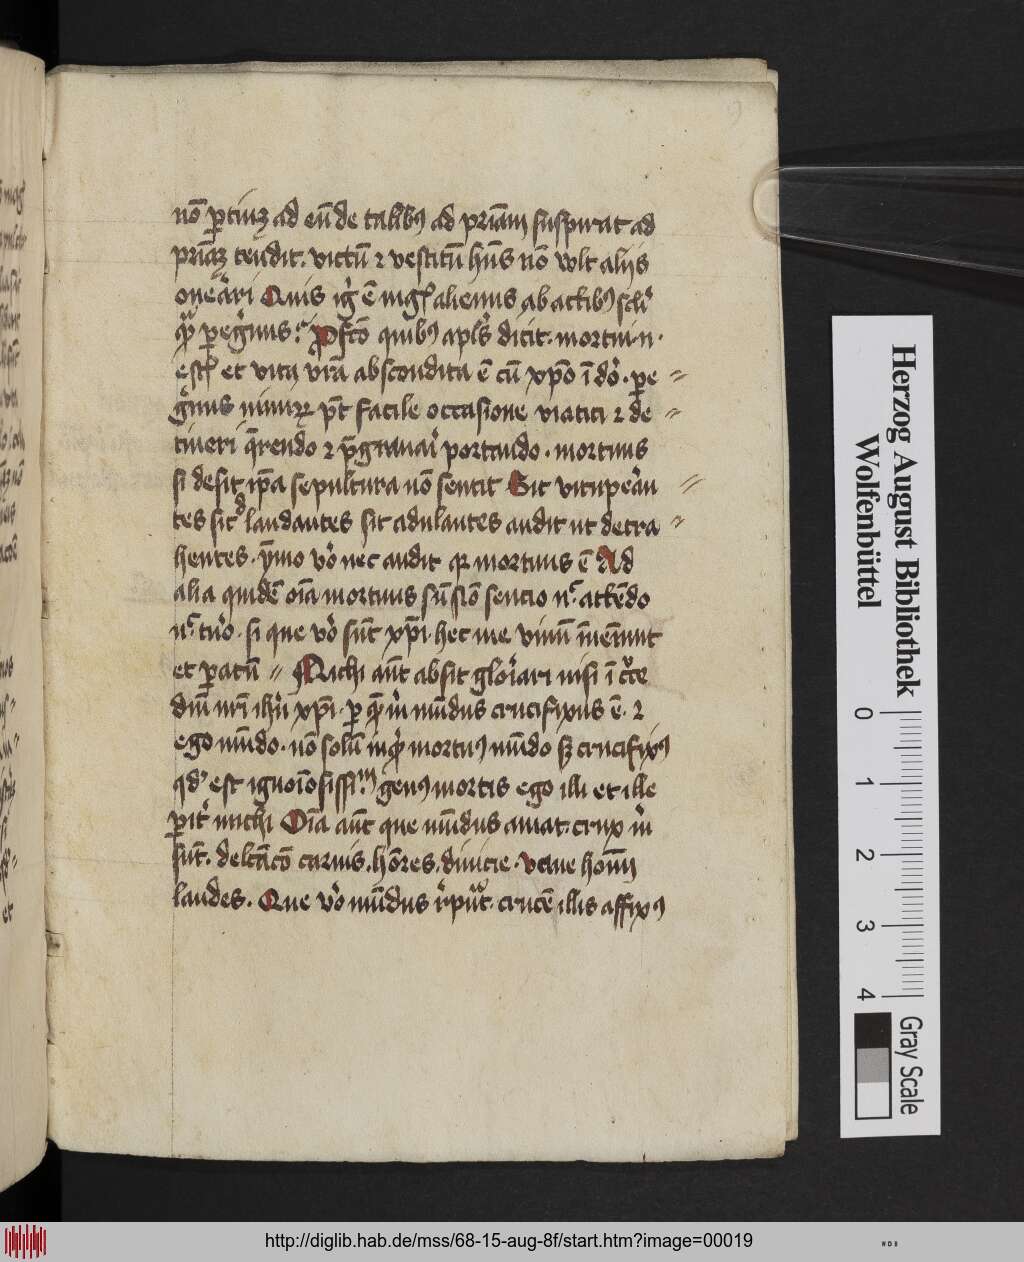 nō ꝑtinꝫ ad eū de talibꝰ ad pr̄iam suspirat ad
pr̄iaꝫ tendit. victū ⁊ vestitū hn̄s nō vult alijs
on̄ari Quis igͥ ē mgͥ alienus ab actibꝰ scl̓i
qͣ ꝑegͥnus. ꝓfcō quibꝰ apl̓s dicit. mortui. n.
estͥ et vita vr̄a abscondita ē cū xp̄o ī dō. ꝑe
gͥnus nimiꝝ pt̄ facile occasione viatici ⁊ de
tineri qͥrendo ⁊ p̄grauari portando. mortuus
si desit ip̄a sepultura nō sentit Sic vituꝑan
tes sicͩ laudantes sic adulantes audit ut detra
hentes. ymo vͦ nec audit qꝛ mortuus ē Ad
alia quidē oīa mortuus sū nō sencio nͨ attēdo
nͨ curo. si que vͦ sūt xp̄i. hec me viuū īueniūt
et ꝑatū Michi aūt absit gloriari nisi ī cͥce
dn̄i nr̄i ihū xp̄i. ꝑ quē mͥ mūdus crucifixus ē. ⁊
ego mūdo. nō solū inqͥ mortuꝰ mūdo sꝫ crucifixꝰ
qd̓ est ignoīosissimͫ genꝰ mortis ego illi et ille
ꝑitͥ michi Oīa aūt que mūdus amat. crux mͥ
sūt. delcāco carnis. hōres. diuicie. vane hoīm
laudes. Que vͦ mūdus r̓putͣt. crucē illis affixꝰ
Herzog August Bibliothek
Wolfenbüttel
0 1 2 3 4
Gray Scale
http://diglib.hab.de/mss/68-15-aug-8f/start.htm?image=00019